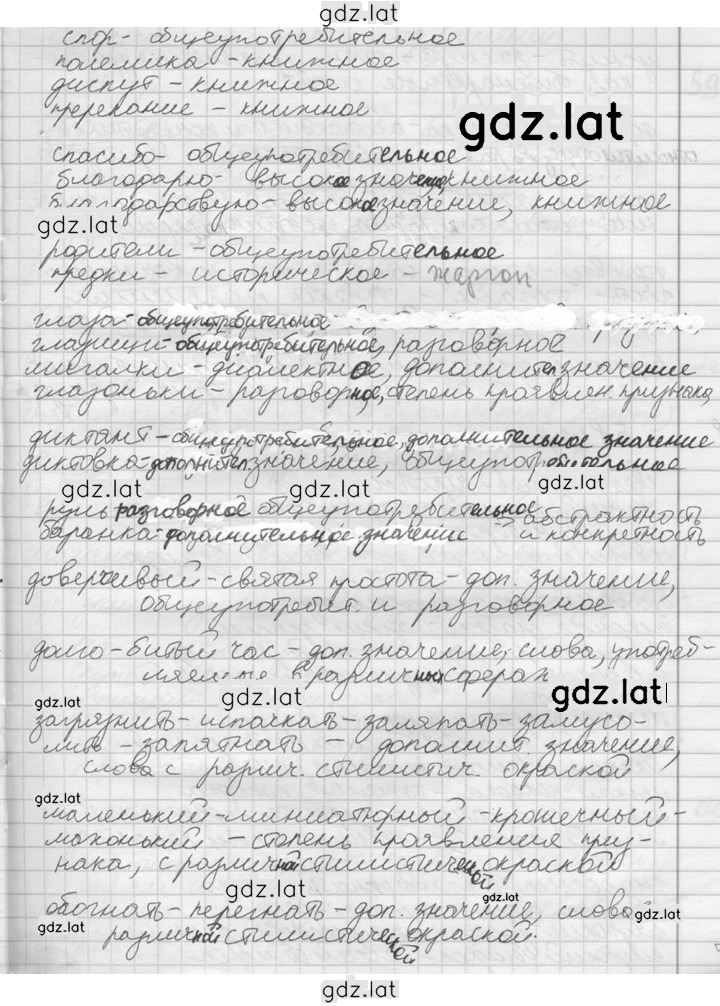 gdz.lat
спор - общеупотребительное
полемика - книжное
диспут - книжное
пререкание - книжное
gdz.lat
спасибо - общеупотребительное
благодарю - высокое значение, книжное
благодарствую - высокое значение, книжное
gdz.lat
родители - общеупотребительное
предки - историческое - жаргон
глаза - общеупотребительное
глазищи - общеупотребительное, разговорное
мигалки - диалектное, дополнител значение
глазоньки - разговорное, степень проявлен. признака
диктант - общеупотребительное, дополнительное значение
диктовка - дополнител значение, общеупотребительное
gdz.lat gdz.lat
руль разговорное общеупотребительное → абстрактность
баранка - дополнительное значение и конкретность
доверчивый - святая простота - доп. значение,
общеупотребит. и разговорное
долго - битый час - доп. значение, слова, употреб-
ляемые в различных сферах
gdz.lat gdz.lat gdz.lat
загрязнить - испачкать - заляпать - замусо-
лить - запятнать - дополнит. значение,
слова с различ. стилистич. окраской
gdz.lat
маленький - миниатюрный - крошечный -
махонький - степень проявления приз-
нака, с различной стилистической окраской
gdz.lat gdz.lat
обогнать - перегнать - доп. значение, слова с
gdz.lat
различной стилистической окраской.
gdz.lat